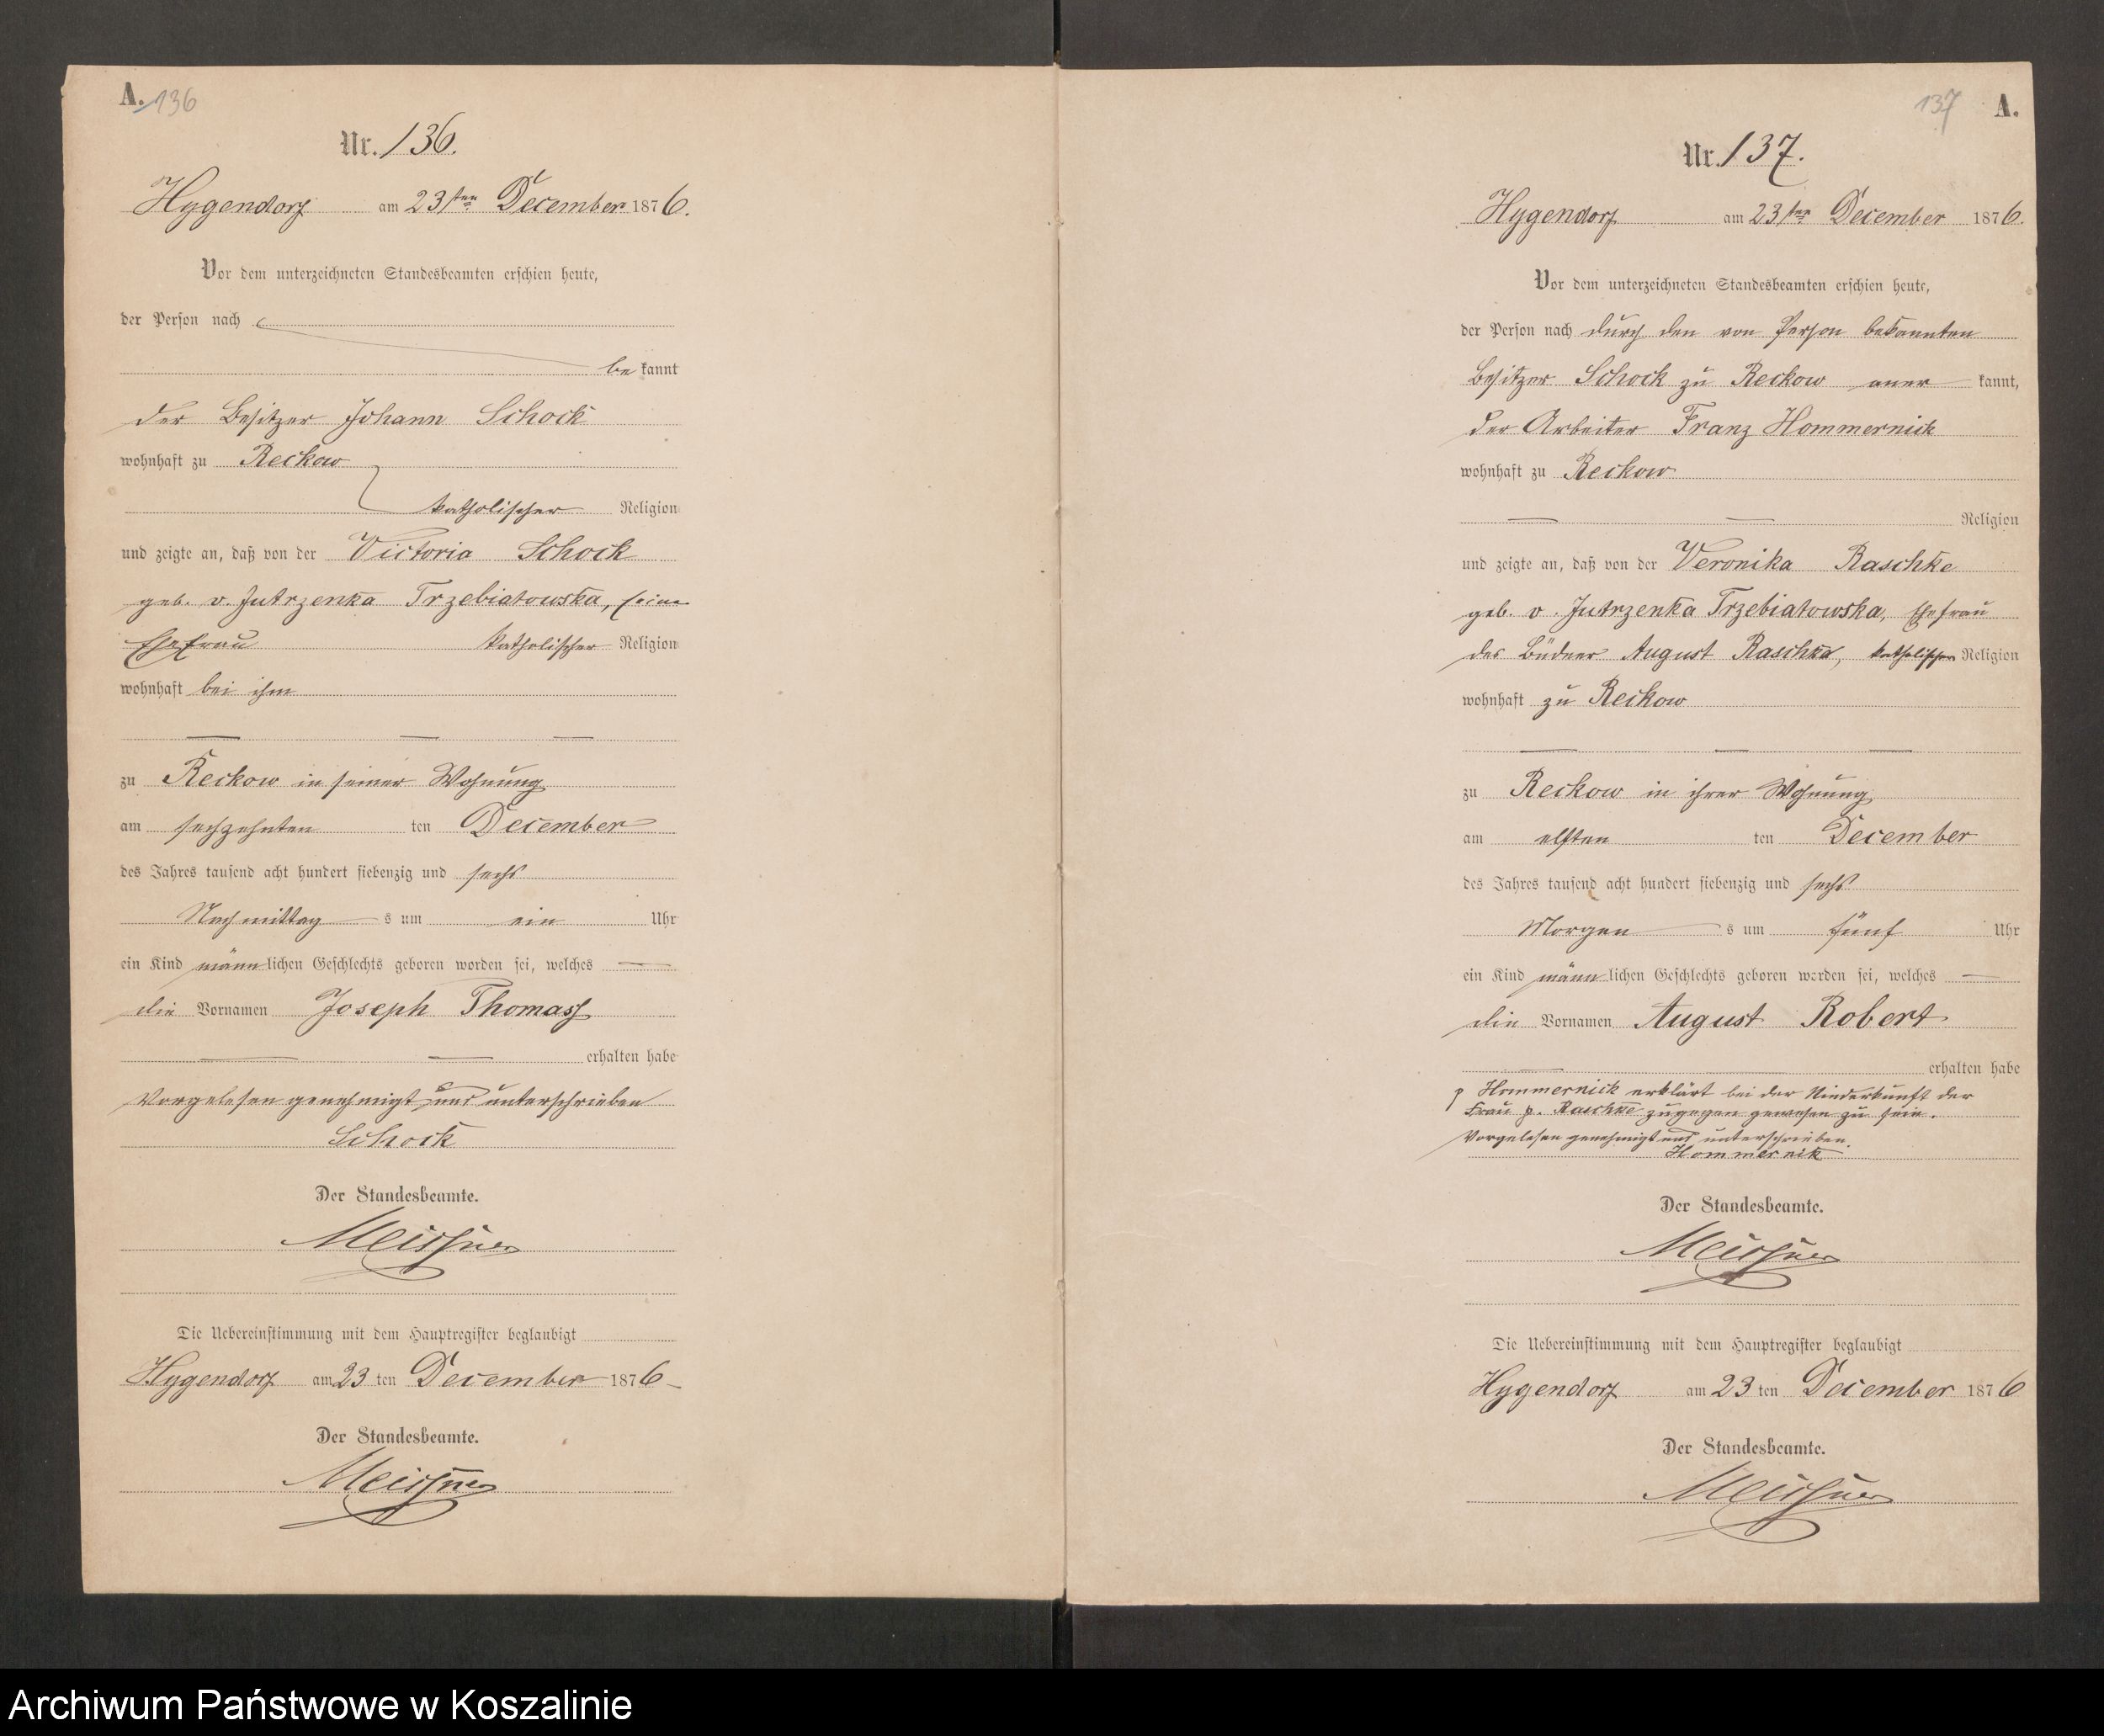 A. 136
Nr. 136.
Hygendorf am 23ten December 1876.
Vor dem unterzeichneten Standesbeamten erschien heute,
der Person nach
be kannt
der Besitzer Johann Schock
wohnhaft zu Reckow
katholischer Religion
und zeigte an, daß von der Victoria Schock
geb. v. Jutrzenka Trzebiatowska, seine
Ehefrau katholischer Religion
wohnhaft bei ihm
zu Reckow in seiner Wohnung
am sechzehnten ten December
des Jahres tausend acht hundert siebenzig und sechs
Nachmittag s um ein Uhr
ein Kind männlichen Geschlechts geboren worden sei, welches
die Vornamen Joseph Thomass
erhalten habe
Vorgelesen genehmigt und unterschrieben
Schock
Der Standesbeamte.
Meissner
Die Uebereinstimmung mit dem Hauptregister beglaubigt
Hygendorf am 23 ten December 1876
Der Standesbeamte.
Meissner
137 A.
Nr. 137.
Hygendorf am 23ten December 1876.
Vor dem unterzeichneten Standesbeamten erschien heute,
der Person nach durch den von Person bekannten
Besitzer Schock zu Reckow aner kannt,
der Arbeiter Franz Hommernick
wohnhaft zu Reckow
Religion
und zeigte an, daß von der Veronika Raschke
geb. v. Jutrzenka Trzebiatowska, Ehefrau
des Büdner August Raschke, katholischer Religion
wohnhaft zu Reckow
zu Reckow in ihrer Wohnung
am elften ten December
des Jahres tausend acht hundert siebenzig und sechs
Morgen s um fünf Uhr
ein Kind männlichen Geschlechts geboren worden sei, welches
die Vornamen August Robert
erhalten habe
p Hommernick erklärt bei der Niederkunft der
Frau p. Raschke zugegen gewesen zu sein.
Vorgelesen genehmigt und unterschrieben.
Hommernik
Der Standesbeamte.
Meissner
Die Uebereinstimmung mit dem Hauptregister beglaubigt
Hygendorf am 23 ten December 1876
Der Standesbeamte.
Meissner
Archiwum Państwowe w Koszalinie